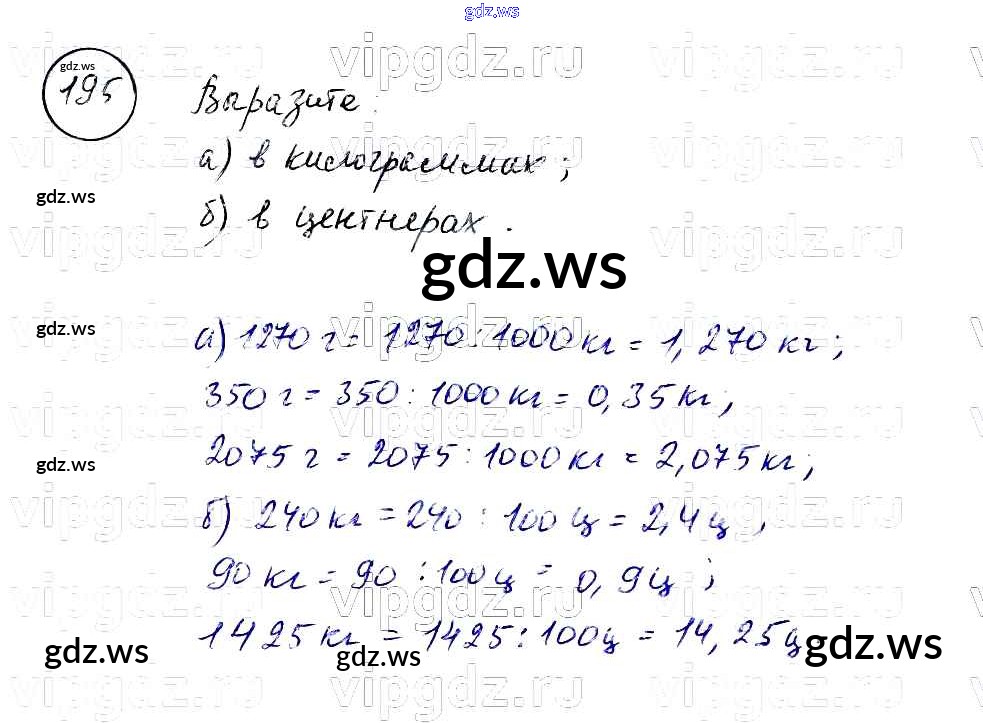 gdz.ws
gdz.ws
195
Выразите:
а) в килограммах;
gdz.ws
б) в центнерах.
gdz.ws
gdz.ws
а) 1270 г = 1270 : 1000 кг = 1,270 кг;
350 г = 350 : 1000 кг = 0,35 кг;
gdz.ws
2075 г = 2075 : 1000 кг = 2,075 кг;
б) 240 кг = 240 : 100 ц = 2,4 ц;
90 кг = 90 : 100 ц = 0,9 ц;
1425 кг = 1425 : 100 ц = 14,25 ц
gdz.ws
gdz.ws
gdz.ws
vipgdz.ru